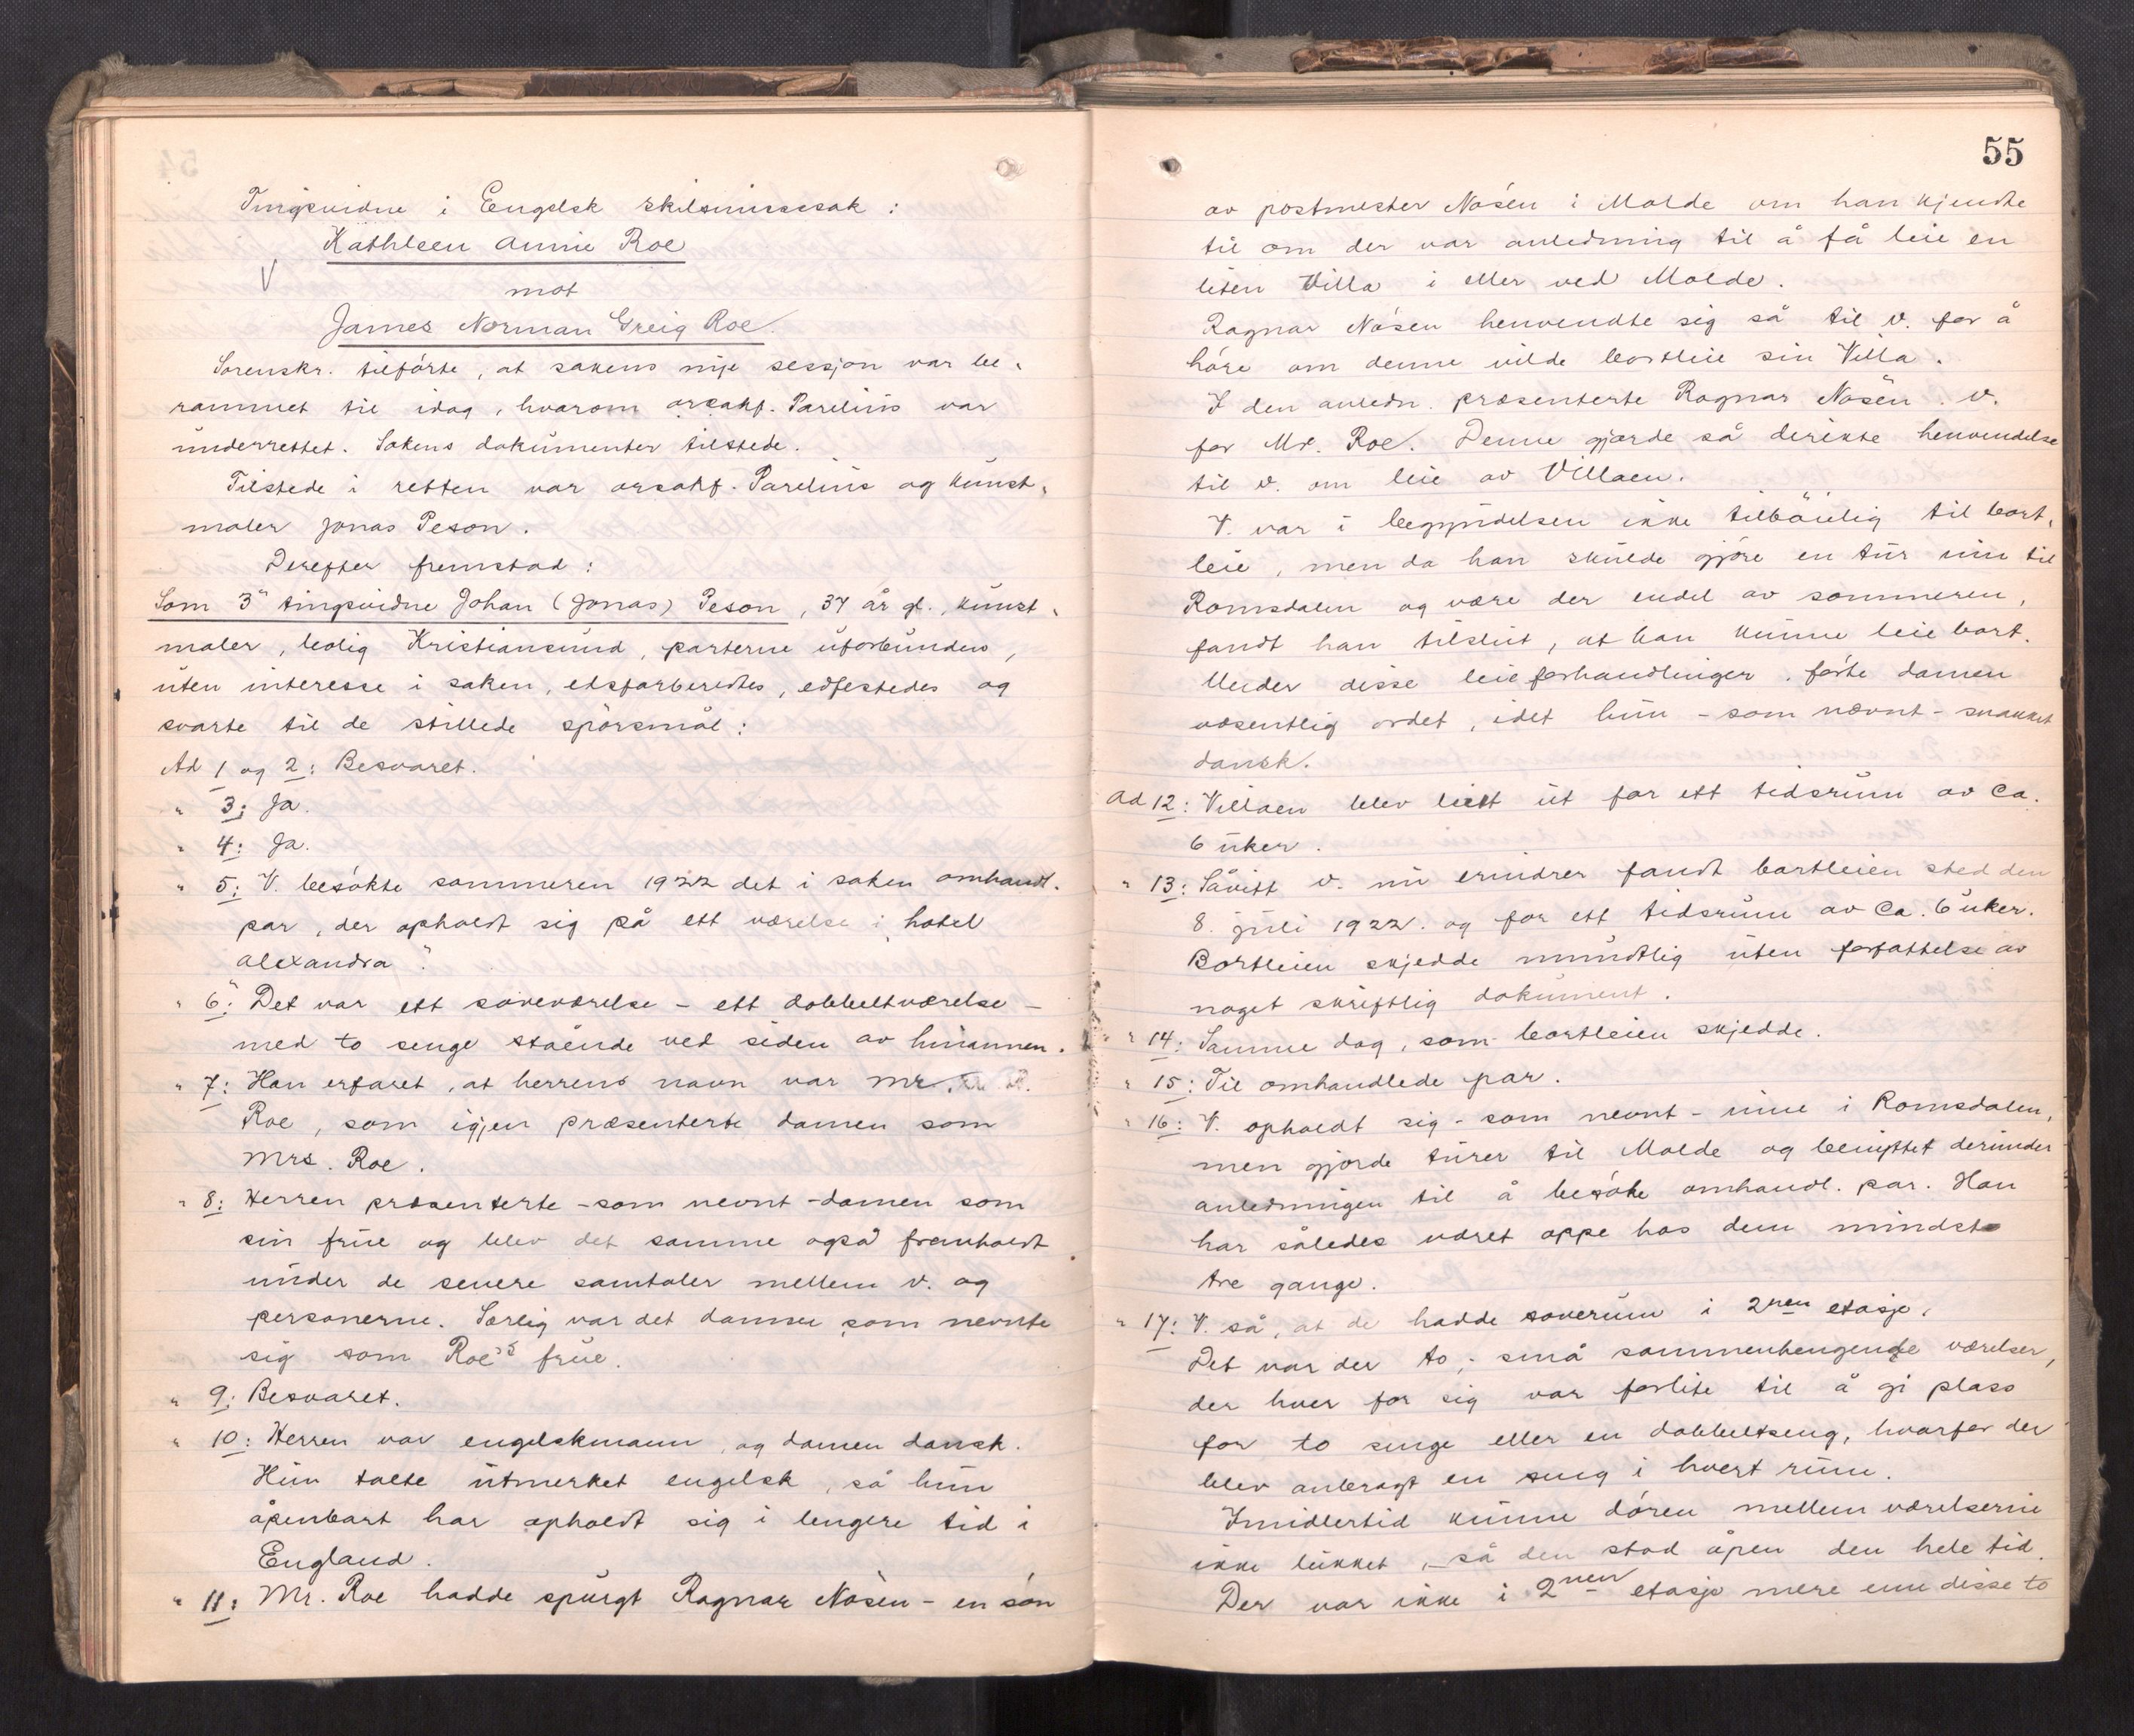 Tingsvidne i Engelsk skilsmissesak:
Kathleen Annie Roe
V
mot
James Norman Greig Roe.
Sorenskr. tilførte, at sakens nye sessjon var be-
rammet til idag, hvorom orsakf. Parelius var
underrettet. Sakens dokumenter tilstede.
Tilstede i retten var orsakf. Parelius og kunst-
maler Jonas Peson.
Derefter fremstod:
Som 3" tingsvidne Johan (Jonas) Peson, 37 år gl., kunst-
maler, bolig Kristiansund, parterne uforbunden,
uten interesse i saken, edsforberedtes, edfestedes og
svarte til de stillede spørsmål:
Ad 1 og 2: Besvaret.
" 3: Ja.
" 4: Ja.
" 5: V. besøkte sommeren 1922 det i saken omhandl.
par, der opholdt sig på ett værelse i „hotel
Alexandra".
" 6: Det var ett soveværelse - ett dobbeltværelse -
med to senge stående ved siden av hinannen.
" 7: Han erfaret, at herrens navn var Mr.
Roe, som igjen præsenterte damen som
Mrs. Roe.
" 8: Herren præsenterte - som nevnt - damen som
sin frue og blev det samme også fremholdt
under de senere samtaler mellem v. og
personerne. Særlig var det damen som nevnte
sig som Roe's frue.
" 9: Besvaret.
" 10: Herren var engelskmann, og damen dansk.
Hun talte utmerket engelsk, så hun
åpenbart har opholdt sig i lengere tid i
England.
" 11: Mr. Roe hadde spurgt Ragnar Nøsen - en søn
55
av postmester Nøsen i Molde om han kjendte
til om der var anledning til å få leie en
liten Villa i eller ved Molde.
Ragnar Nøsen henvendte sig så til v. for å
høre om denne vilde bortleie sin Villa.
I den anledn. præsenterte Ragnar Nøsen v.
for Mr. Roe. Denne gjorde så direkte henvendelse
til v. om leie av Villaen.
V. var i begyndelsen ikke tilbøielig til bort-
leie, men da han skulde gjøre en tur inn til
Romsdalen og være der endel av sommeren,
fandt han tilslut, at han kunne leie bort.
Under disse leieforhandlinger førte damen
væsentlig ordet, idet hun - som nævnt - snakket
dansk.
Ad 12: Villaen blev leiet ut for ett tidsrum av ca.
6 uker.
" 13: Såvitt v. nu erindrer fandt bortleien sted den
8. juli 1922. og for ett tidsrum av ca. 6 uker.
Bortleien skjedde mundtlig uten forfattelse av
noget skriftlig dokument.
" 14: Samme dag, som bortleien skjedde.
" 15: Til omhandlede par.
" 16: V. opholdt sig - som nevnt - inne i Romsdalen,
men gjorde turer til Molde og benyttet derunder
anledningen til å besøke omhandl. par. Han
har således været oppe hos dem mindst
tre gange.
" 17: V. så, at de hadde soverum i 2nen etasje.
Det var der to, små sammenhengende værelser,
der hver for sig var forlite til å gi plass
for to senge eller en dobbeltseng, hvorfor der
blev anbragt en seng i hvert rum.
Imidlertid kunne døren mellem værelserne
ikke lukket, så den stod åpen den hele tid.
Der var ikke i 2nen etasje mere enn disse to